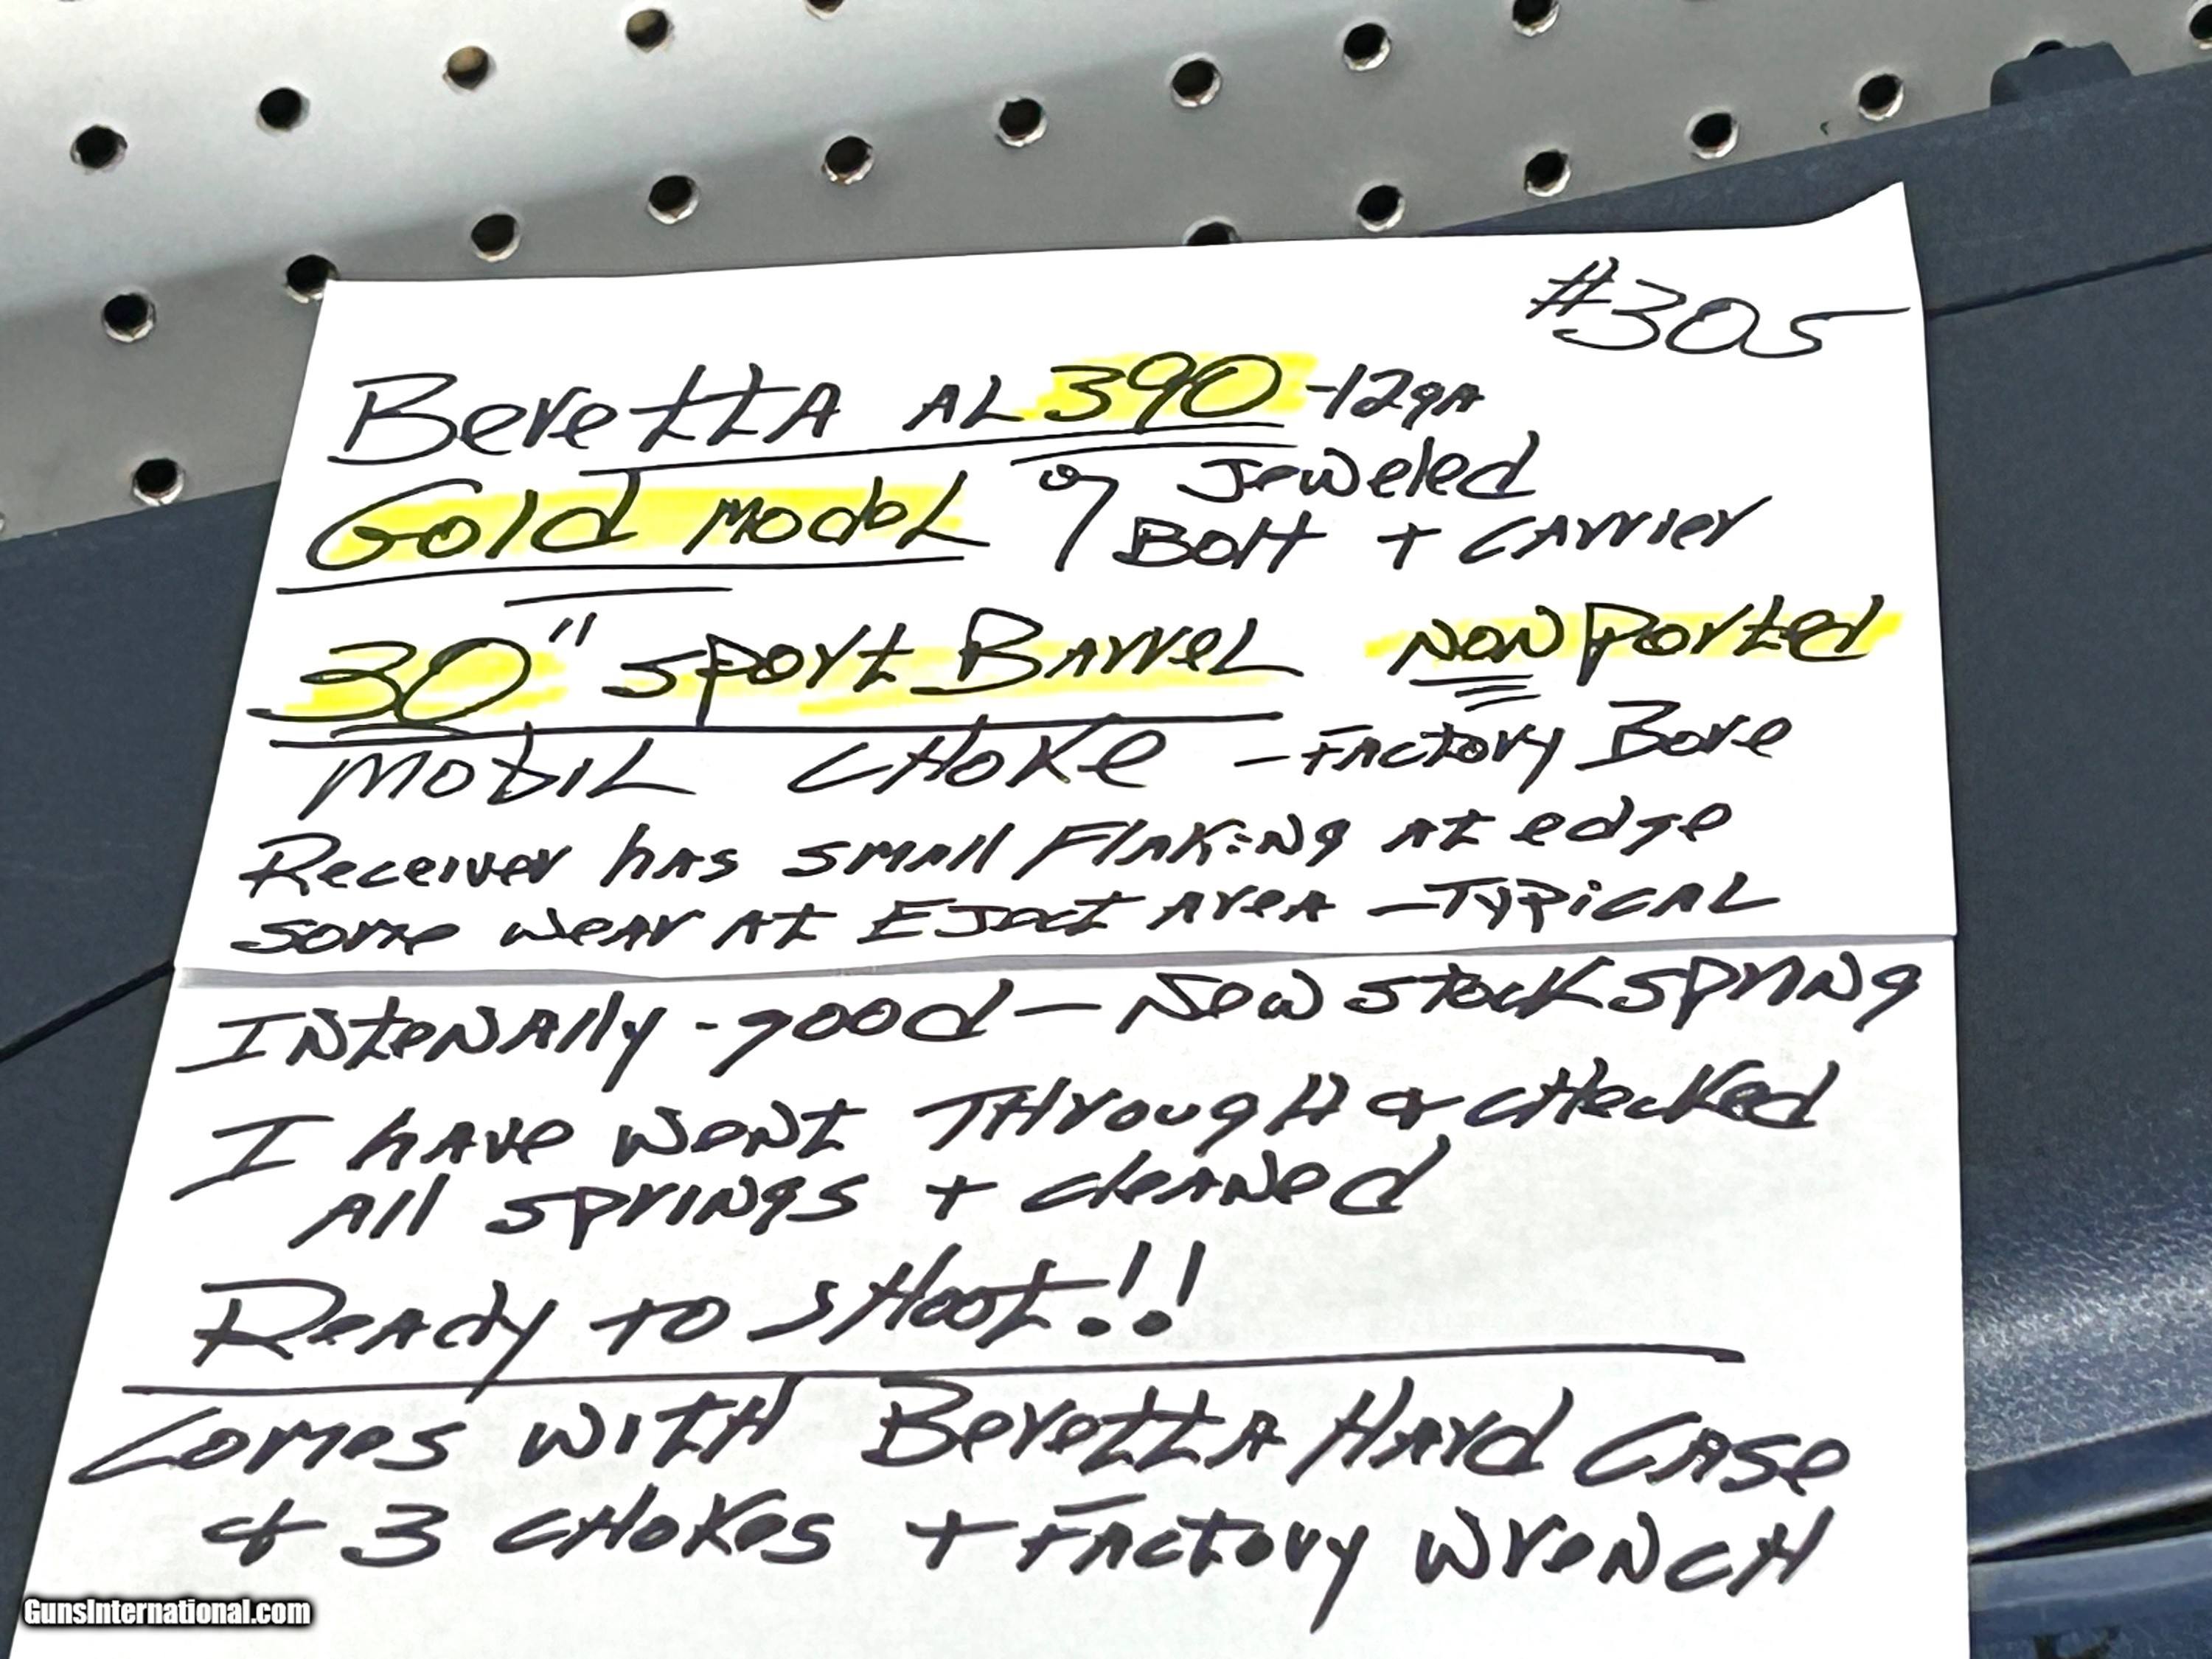 #305
Beretta AL 390 -12ga
Gold Model w/ Jeweled
Bolt + Carrier
30" Sport Barrel Non Ported
Mobil Choke - Factory Bore
Receiver has small Flaking at edge
some wear at Eject Area - Typical
Intenally - good - New stock spring
I have went Through & checked
All springs + cleaned
Ready to shoot!!
Comes with Beretta Hard Case
& 3 chokes + Factory wrench
GunsInternational.com